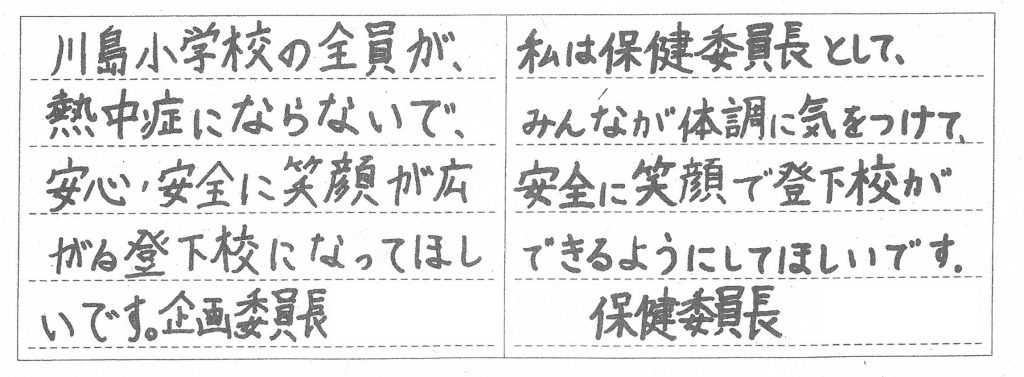 川島小学校の全員が、
熱中症にならないで、
安心・安全に笑顔が広
がる登下校になってほし
いです。企画委員長
私は保健委員長として、
みんなが体調に気をつけて、
安全に笑顔で登下校が
できるようにしてほしいです.
保健委員長